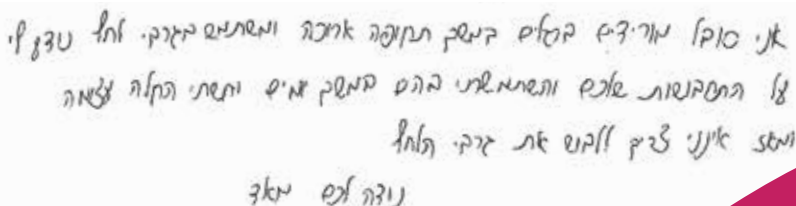 אני סובל מורידים ברגלים במשך תקופה ארוכה ומשתמש בגרבי לחץ נודע לי
על התחבושות שלכם והשתמשתי בהם במשך יומים וחשתי הקלה עצומה
ומאז אינני צריך ללבוש את גרבי הלחץ
נודה לכם מאד